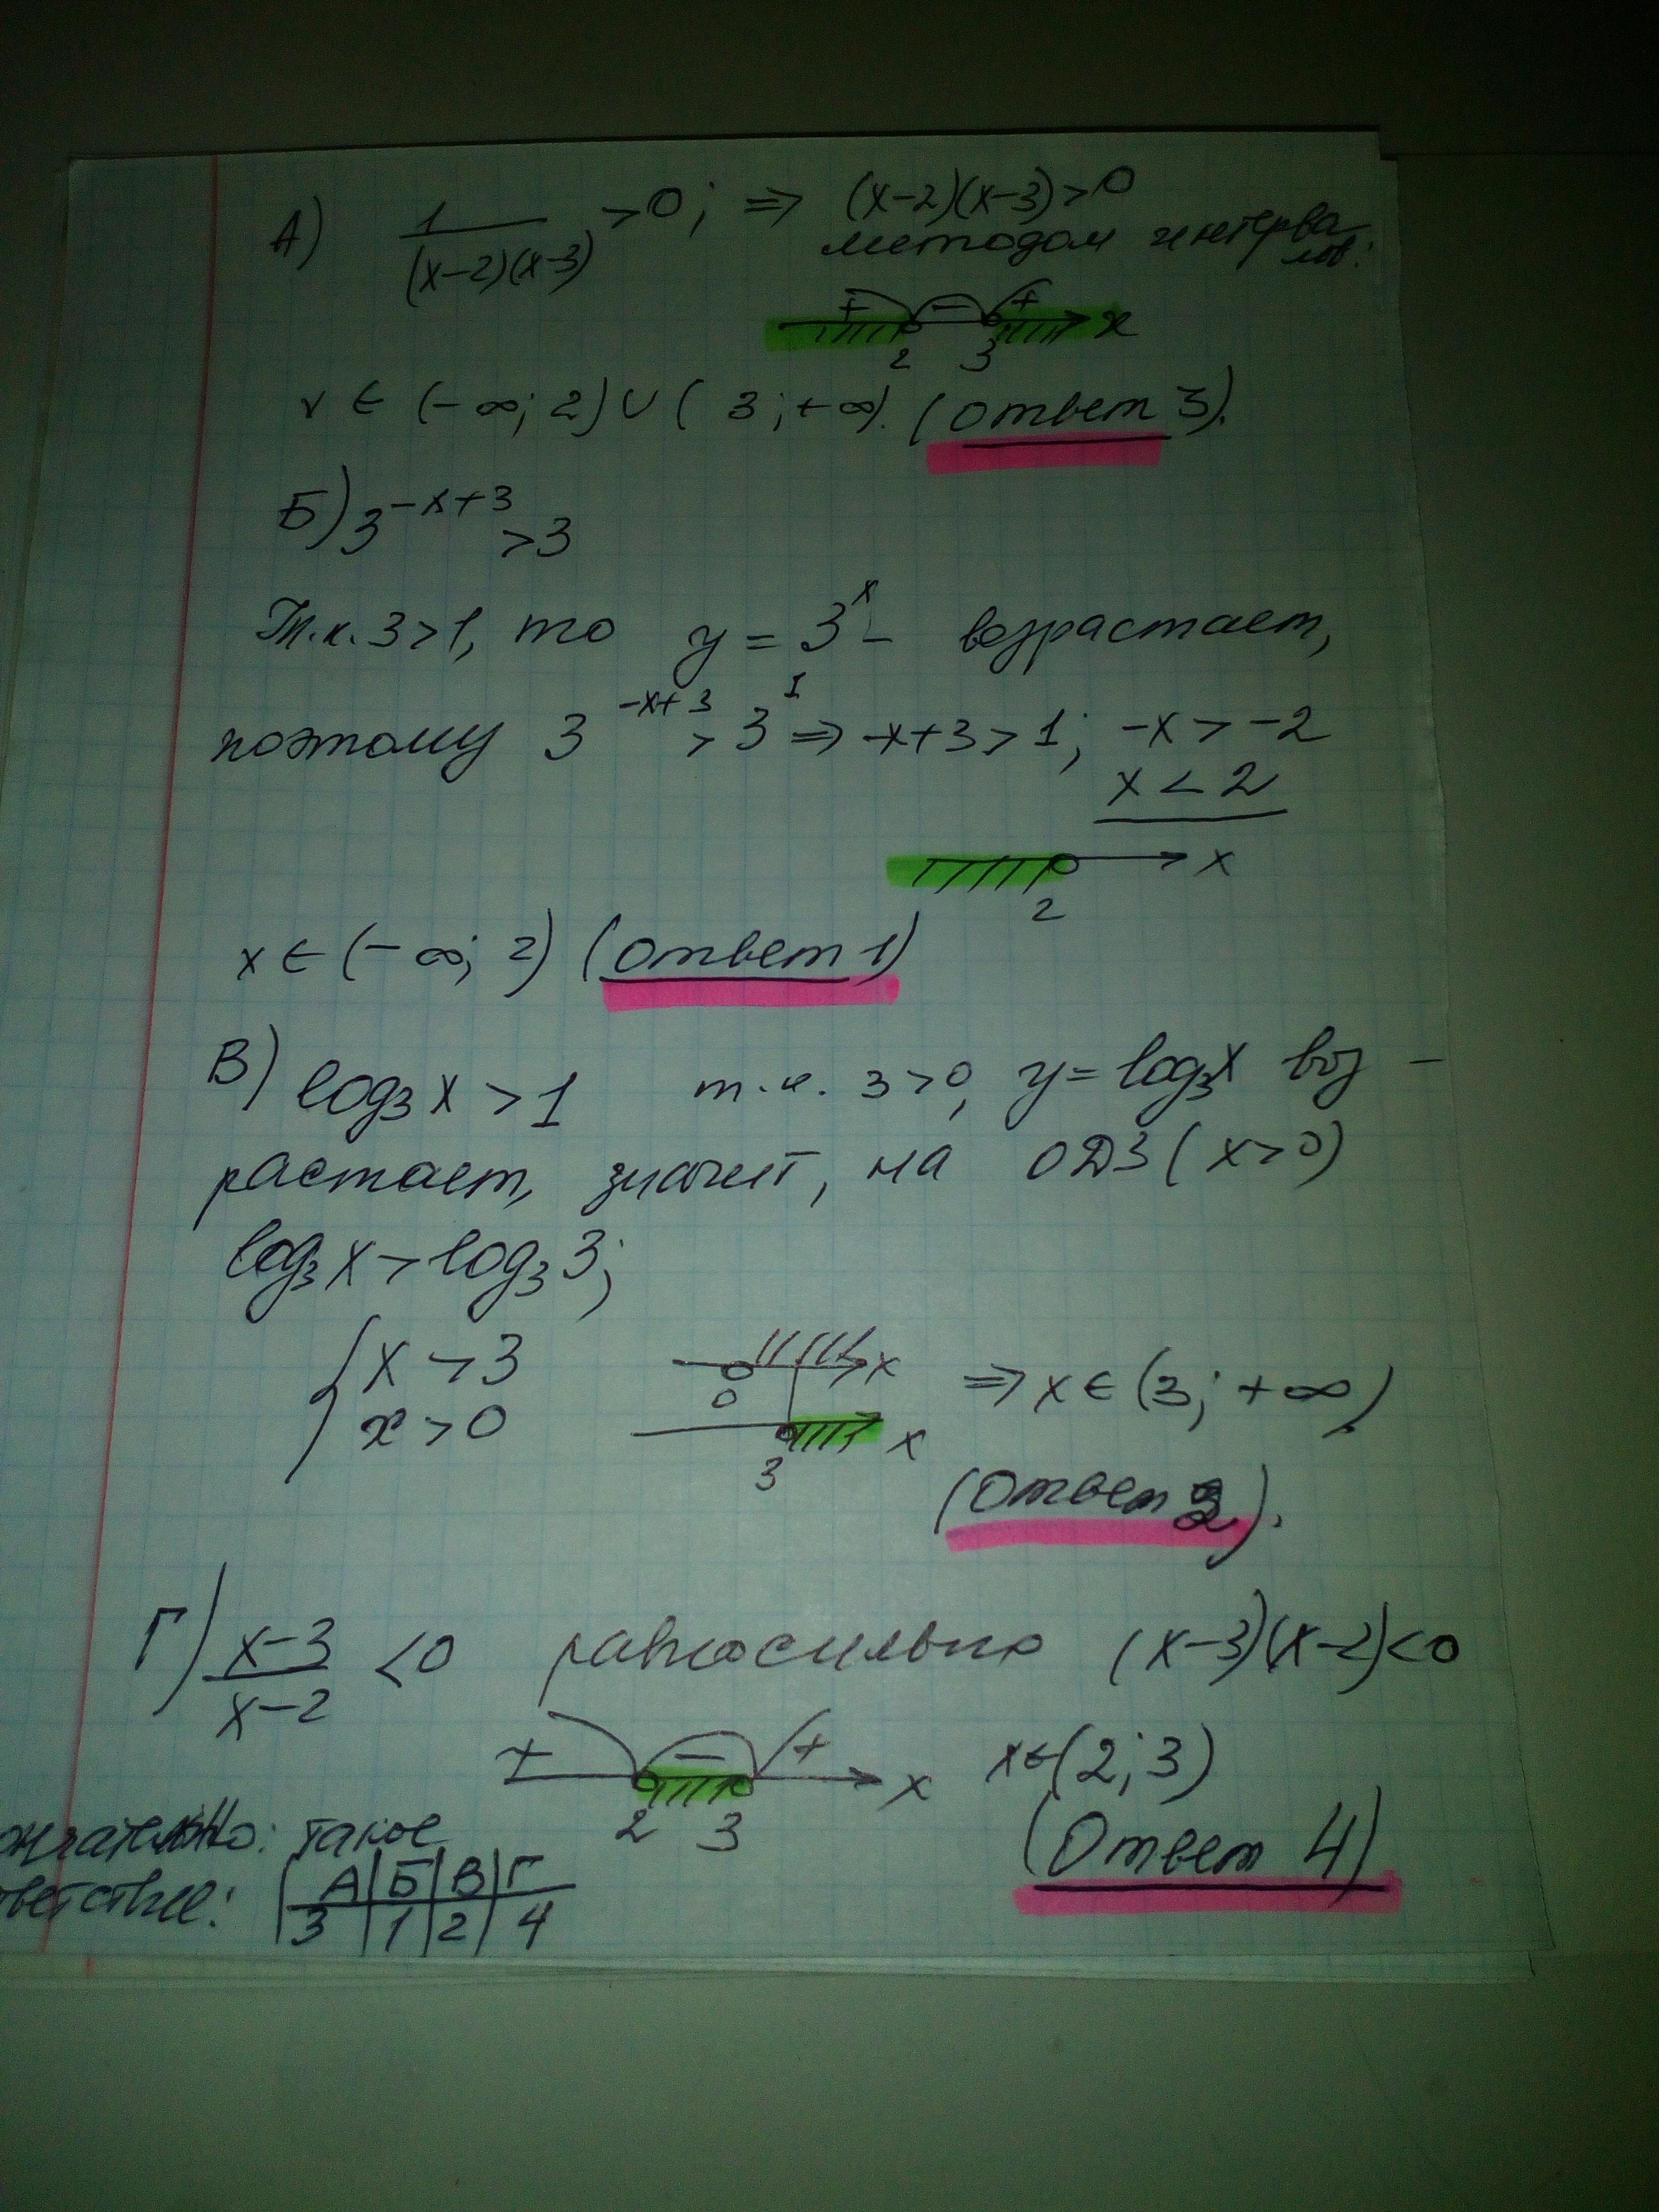 А) 1/((x-2)(x-3)) >0; ⇒ (x-2)(x-3)>0
методом интерва-
лов:
+ - + x
2 3
x ∈ (-∞; 2) ∪ (3; +∞). (ответ 3).
Б) 3^(-x+3) >3
Т.к. 3>1, то y = 3^x - возрастает,
поэтому 3^(-x+3) > 3^1 ⇒ -x+3>1; -x > -2
x < 2
x
2
x ∈ (-∞; 2) (ответ 1)
В) log₃x >1 т.к. 3>0, y=log₃x воз-
растает, значит, на ОДЗ (x>0)
log₃x > log₃3;
{ x > 3
x > 0
x
0
x
3
⇒ x ∈ (3; +∞)
(Ответ 2).
Г) (x-3)/(x-2) <0 равносильно (x-3)(x-2)<0
+ - + x x∈(2; 3)
2 3
(Ответ 4)
ончательно: такое
тветствие:
А Б В Г
3 1 2 4